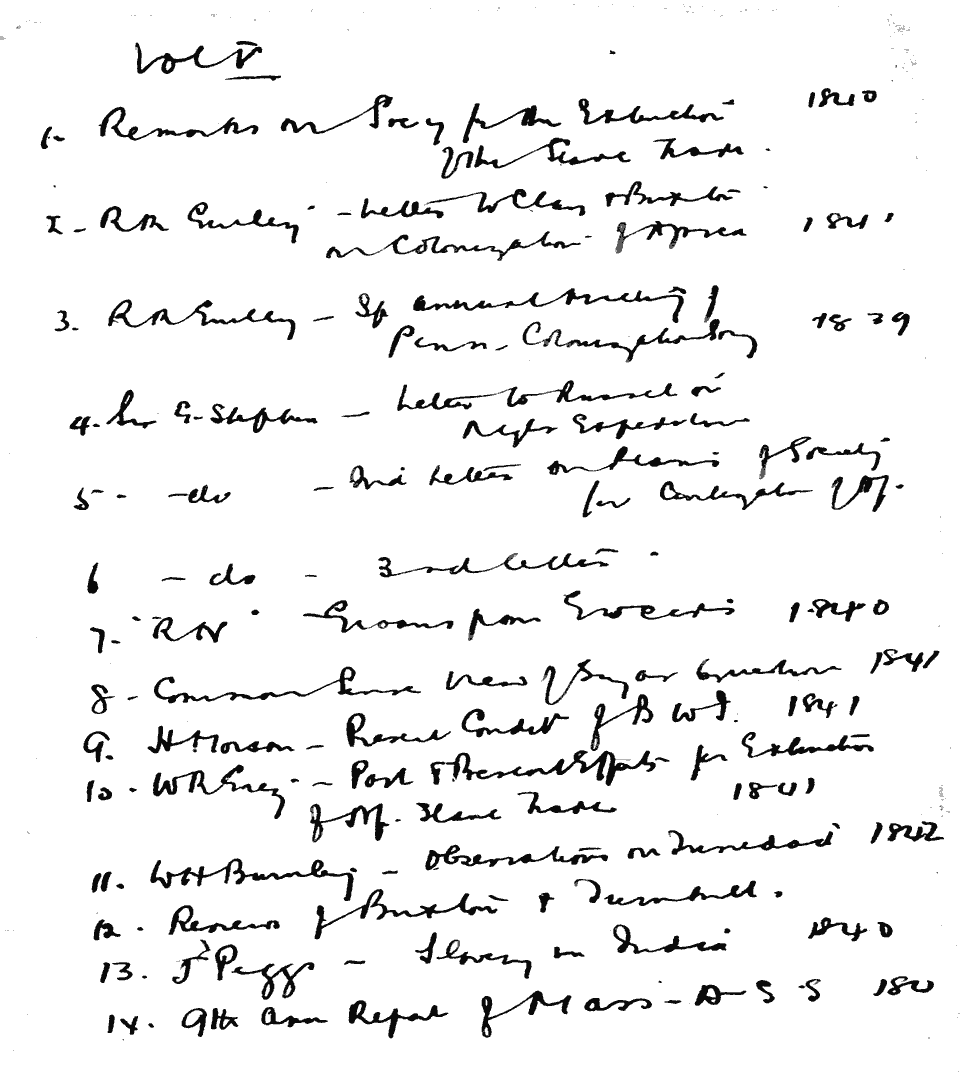 Vol V
1- Remarks on Socy for the Extinction 1840
of the Slave Trade.
2- RR Gurley - Letter to Clay & Buxton
on Colonization of Africa 1841
3. RR Gurley - Sp annual meeting of
Penn. Colonization Socy 1839
4. Sir G. Stephen - Letter to Russel on
Niger Expedition
5- -do - 2nd Letter on Plans of Society
for Civilization of Af.
6 - do - 3rd letter.
7- "RN" - Groans from Grocers 1840
8- Common Sense View of Sugar Question 1841
9. H Morson - Present Condit of B W I. 1841
10. WR Grey - Past & Present Efforts for Extinction
of Af. Slave Trade 1841
11. WH Burnley - Observations on Trinidad 1842
12. Reviews of Buxton & Turnbull.
13. J Peggs - Slavery in India 1840
14. 9th Ann Report of Mass - A - S - S